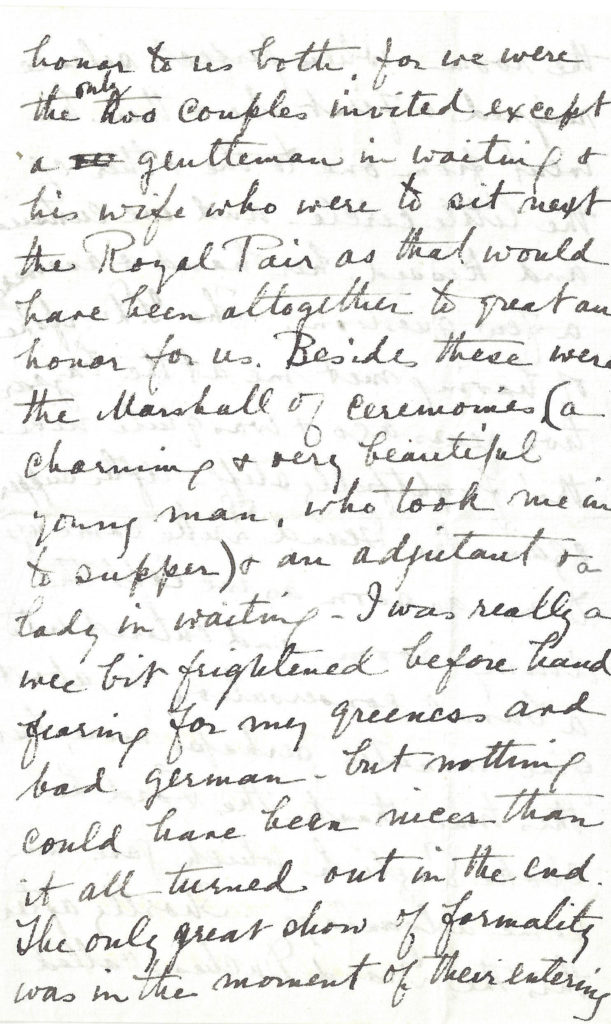 honor to us both, for we were
the only two couples invited except
a gentleman in waiting &
his wife who were to sit next
the Royal Pair as that would
have been altogether to great an
honor for us. Besides these were
the Marshall of ceremonies (a
charming & very beautiful
young man, who took me in
to supper) & an adjutant & a
lady in waiting - I was really a
wee bit frightened before hand
fearing for my greeness and
bad german - but nothing
could have been nicer than
it all turned out in the end.
The only great show of formality
was in the moment of their entering